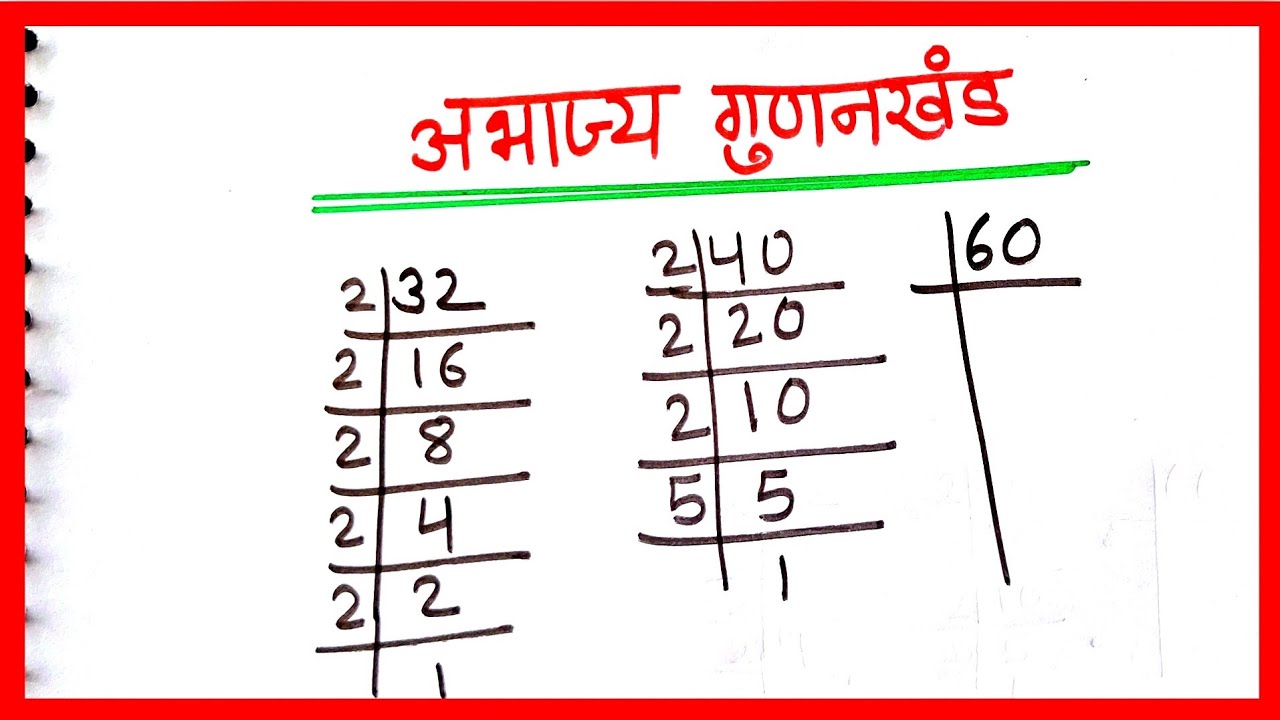 अभाज्य गुणनखंड
2 32
2 16
2 8
2 4
2 2
1
2 40
2 20
2 10
5 5
1
60